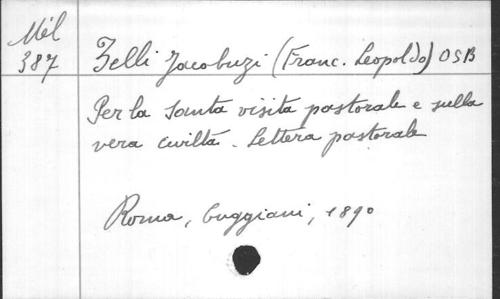 Mél
387
Zelli Jacobuzi (Franc. Leopoldo) OSB
Per la Santa visita pastorale e sulla
vera civiltà - Lettera pastorale
Roma, Cuggiani, 1890